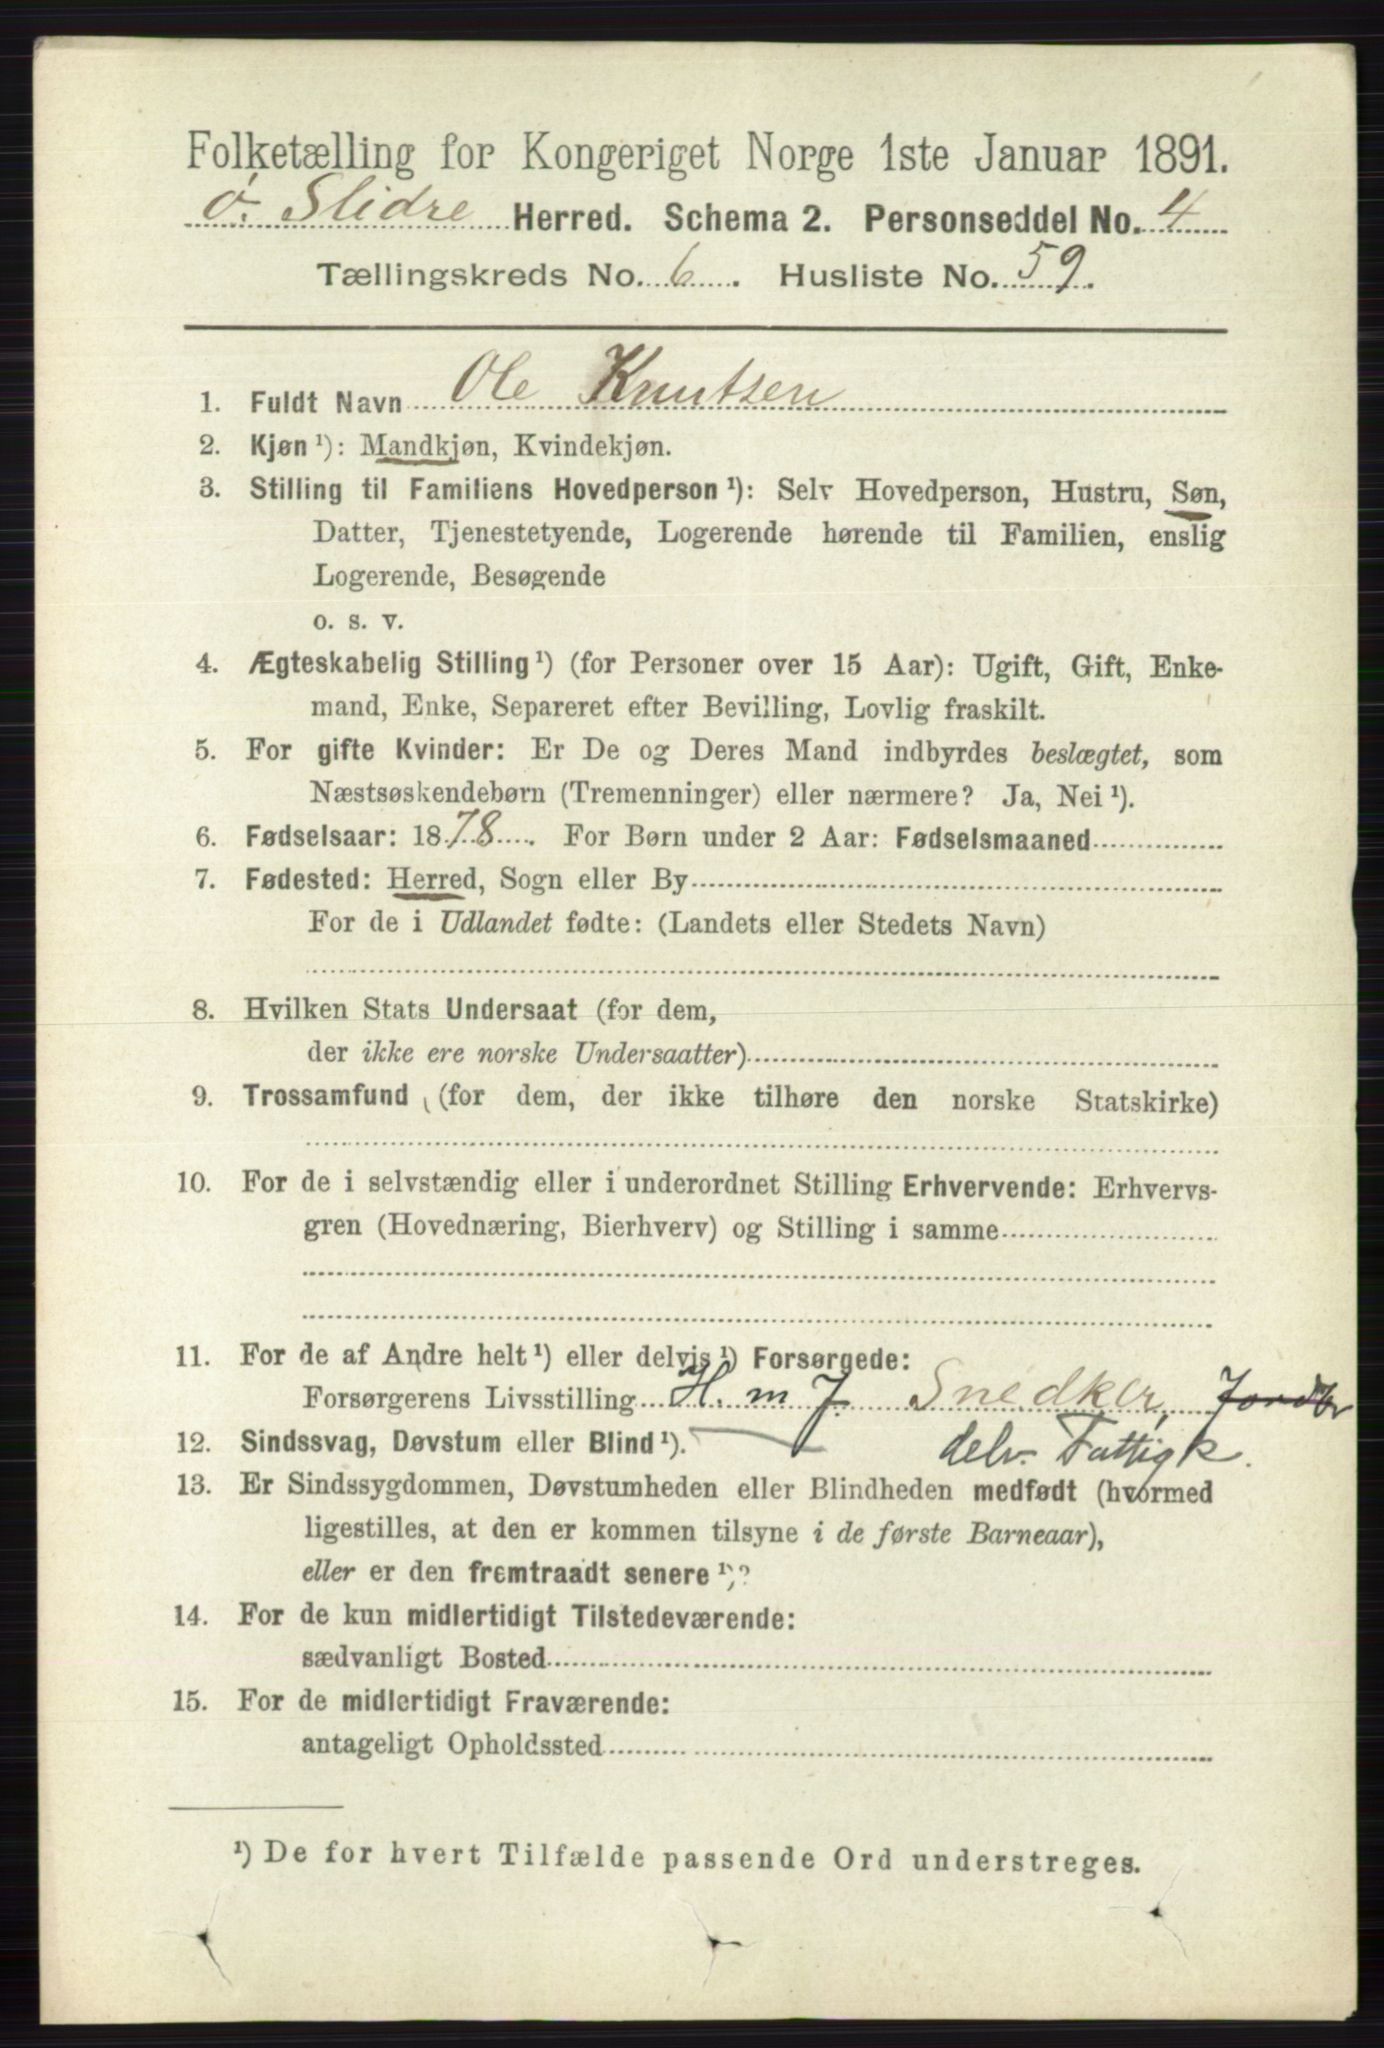 Folketælling for Kongeriget Norge 1ste Januar 1891.
Ø. Slidre Herred. Schema 2. Personseddel No. 4
Tællingskreds No. 6. Husliste No. 59.
1. Fuldt Navn Ole Knutsen
2. Kjøn ¹): Mandkjøn, Kvindekjøn.
3. Stilling til Familiens Hovedperson ¹): Selv Hovedperson, Hustru, Søn,
Datter, Tjenestetyende, Logerende hørende til Familien, enslig
Logerende, Besøgende
o. s. v.
4. Ægteskabelig Stilling ¹) (for Personer over 15 Aar): Ugift, Gift, Enke-
mand, Enke, Separeret efter Bevilling, Lovlig fraskilt.
5. For gifte Kvinder: Er De og Deres Mand indbyrdes beslægtet, som
Næstsøskendebørn (Tremenninger) eller nærmere? Ja, Nei ¹).
6. Fødselsaar: 1878. For Børn under 2 Aar: Fødselsmaaned
7. Fødested: Herred, Sogn eller By
For de i Udlandet fødte: (Landets eller Stedets Navn)
8. Hvilken Stats Undersaat (for dem,
der ikke ere norske Undersaatter)
9. Trossamfund (for dem, der ikke tilhøre den norske Statskirke)
10. For de i selvstændig eller i underordnet Stilling Erhvervende: Erhvervs-
gren (Hovednæring, Bierhverv) og Stilling i samme
11. For de af Andre helt ¹) eller delvis ¹) Forsørgede:
Forsørgerens Livsstilling H. m J. Snedker, Jordbr
12. Sindssvag, Døvstum eller Blind ¹). delv. Fattigk.
13. Er Sindssygdommen, Døvstumheden eller Blindheden medfødt (hvormed
ligestilles, at den er kommen tilsyne i de første Barneaar),
eller er den fremtraadt senere ¹)?
14. For de kun midlertidigt Tilstedeværende:
sædvanligt Bosted
15. For de midlertidigt Fraværende:
antageligt Opholdssted
¹) De for hvert Tilfælde passende Ord understreges.